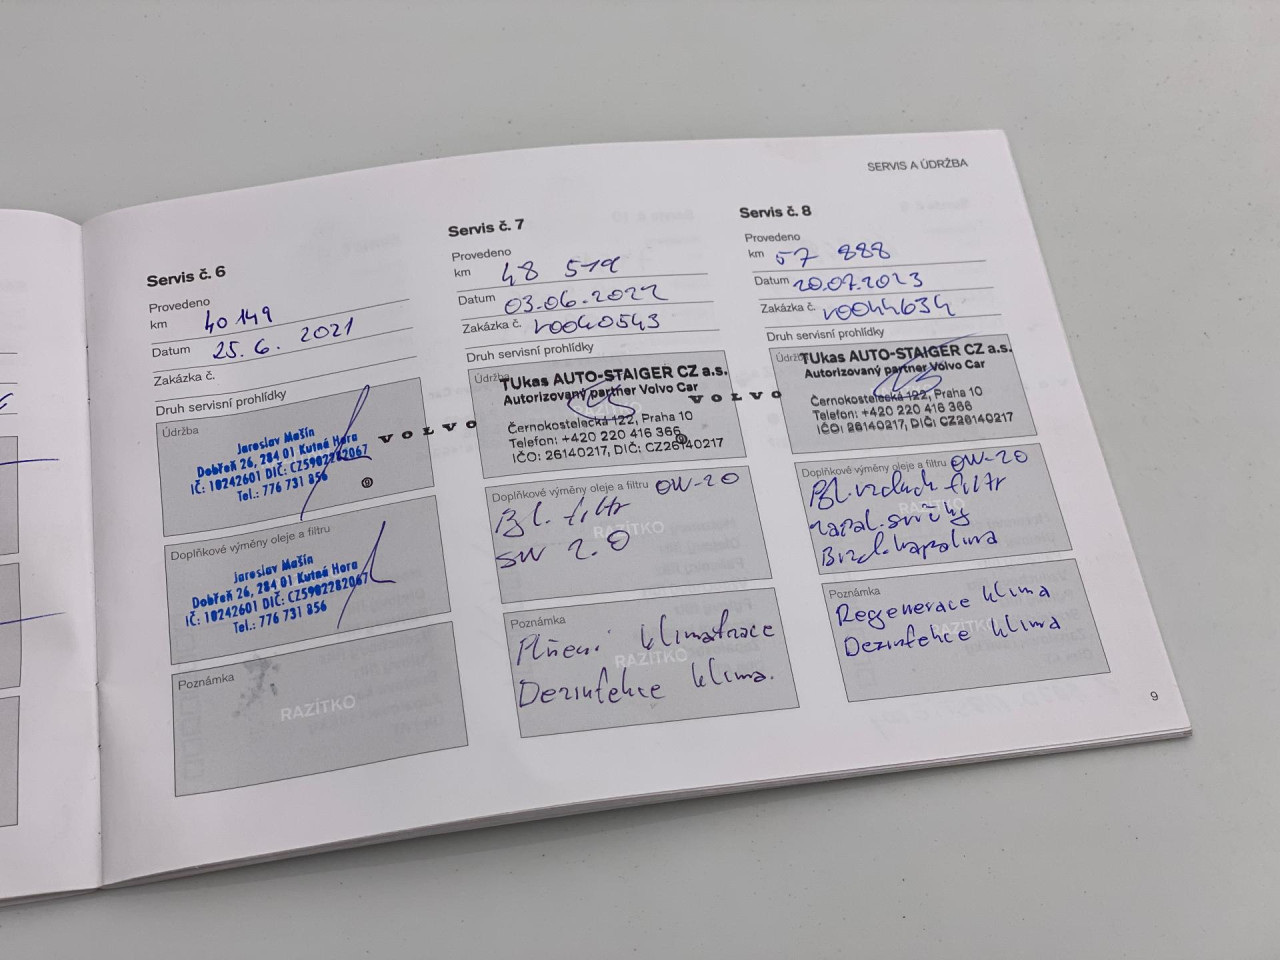 SERVIS A ÚDRŽBA
Servis č. 6
Provedeno
km 40 149
Datum 25. 6. 2021
Zakázka č.
Druh servisní prohlídky
Údržba
Jaroslav Mašín
Dobřeň 26, 284 01 Kutná Hora
IČ: 10242601 DIČ: CZ5902282067
Tel.: 776 731 856
VOLVO
Doplňkové výměny oleje a filtru
Jaroslav Mašín
Dobřeň 26, 284 01 Kutná Hora
IČ: 10242601 DIČ: CZ5902282067
Tel.: 776 731 856
Poznámka
RAZÍTKO
Servis č. 7
Provedeno
km 48 519
Datum 03.06.2022
Zakázka č. v0040543
Druh servisní prohlídky
Údržba
TUkas AUTO-STAIGER CZ a.s.
Autorizovaný partner Volvo Car
Černokostelecká 122, Praha 10
Telefon: +420 220 416 366
IČO: 26140217, DIČ: CZ26140217
VOLVO
Doplňkové výměny oleje a filtru 0W-20
Pyl. filtr
RAZÍTKO
SW 2.0
Poznámka
Plnění klimatizace
RAZÍTKO
Dezinfekce klima.
Servis č. 8
Provedeno
km 57 888
Datum 20.07.2023
Zakázka č. v0044634
Druh servisní prohlídky
Údržba
TUkas AUTO-STAIGER CZ a.s.
Autorizovaný partner Volvo Car
Černokostelecká 122, Praha 10
Telefon: +420 220 416 366
IČO: 26140217, DIČ: CZ26140217
Doplňkové výměny oleje a filtru 0W-20
Pyl. vzduch filtr
RAZÍTKO
zapal. svíčky
Brzd. kapalina
Poznámka
Regenerace klima
RAZÍTKO
Dezinfekce klima
9